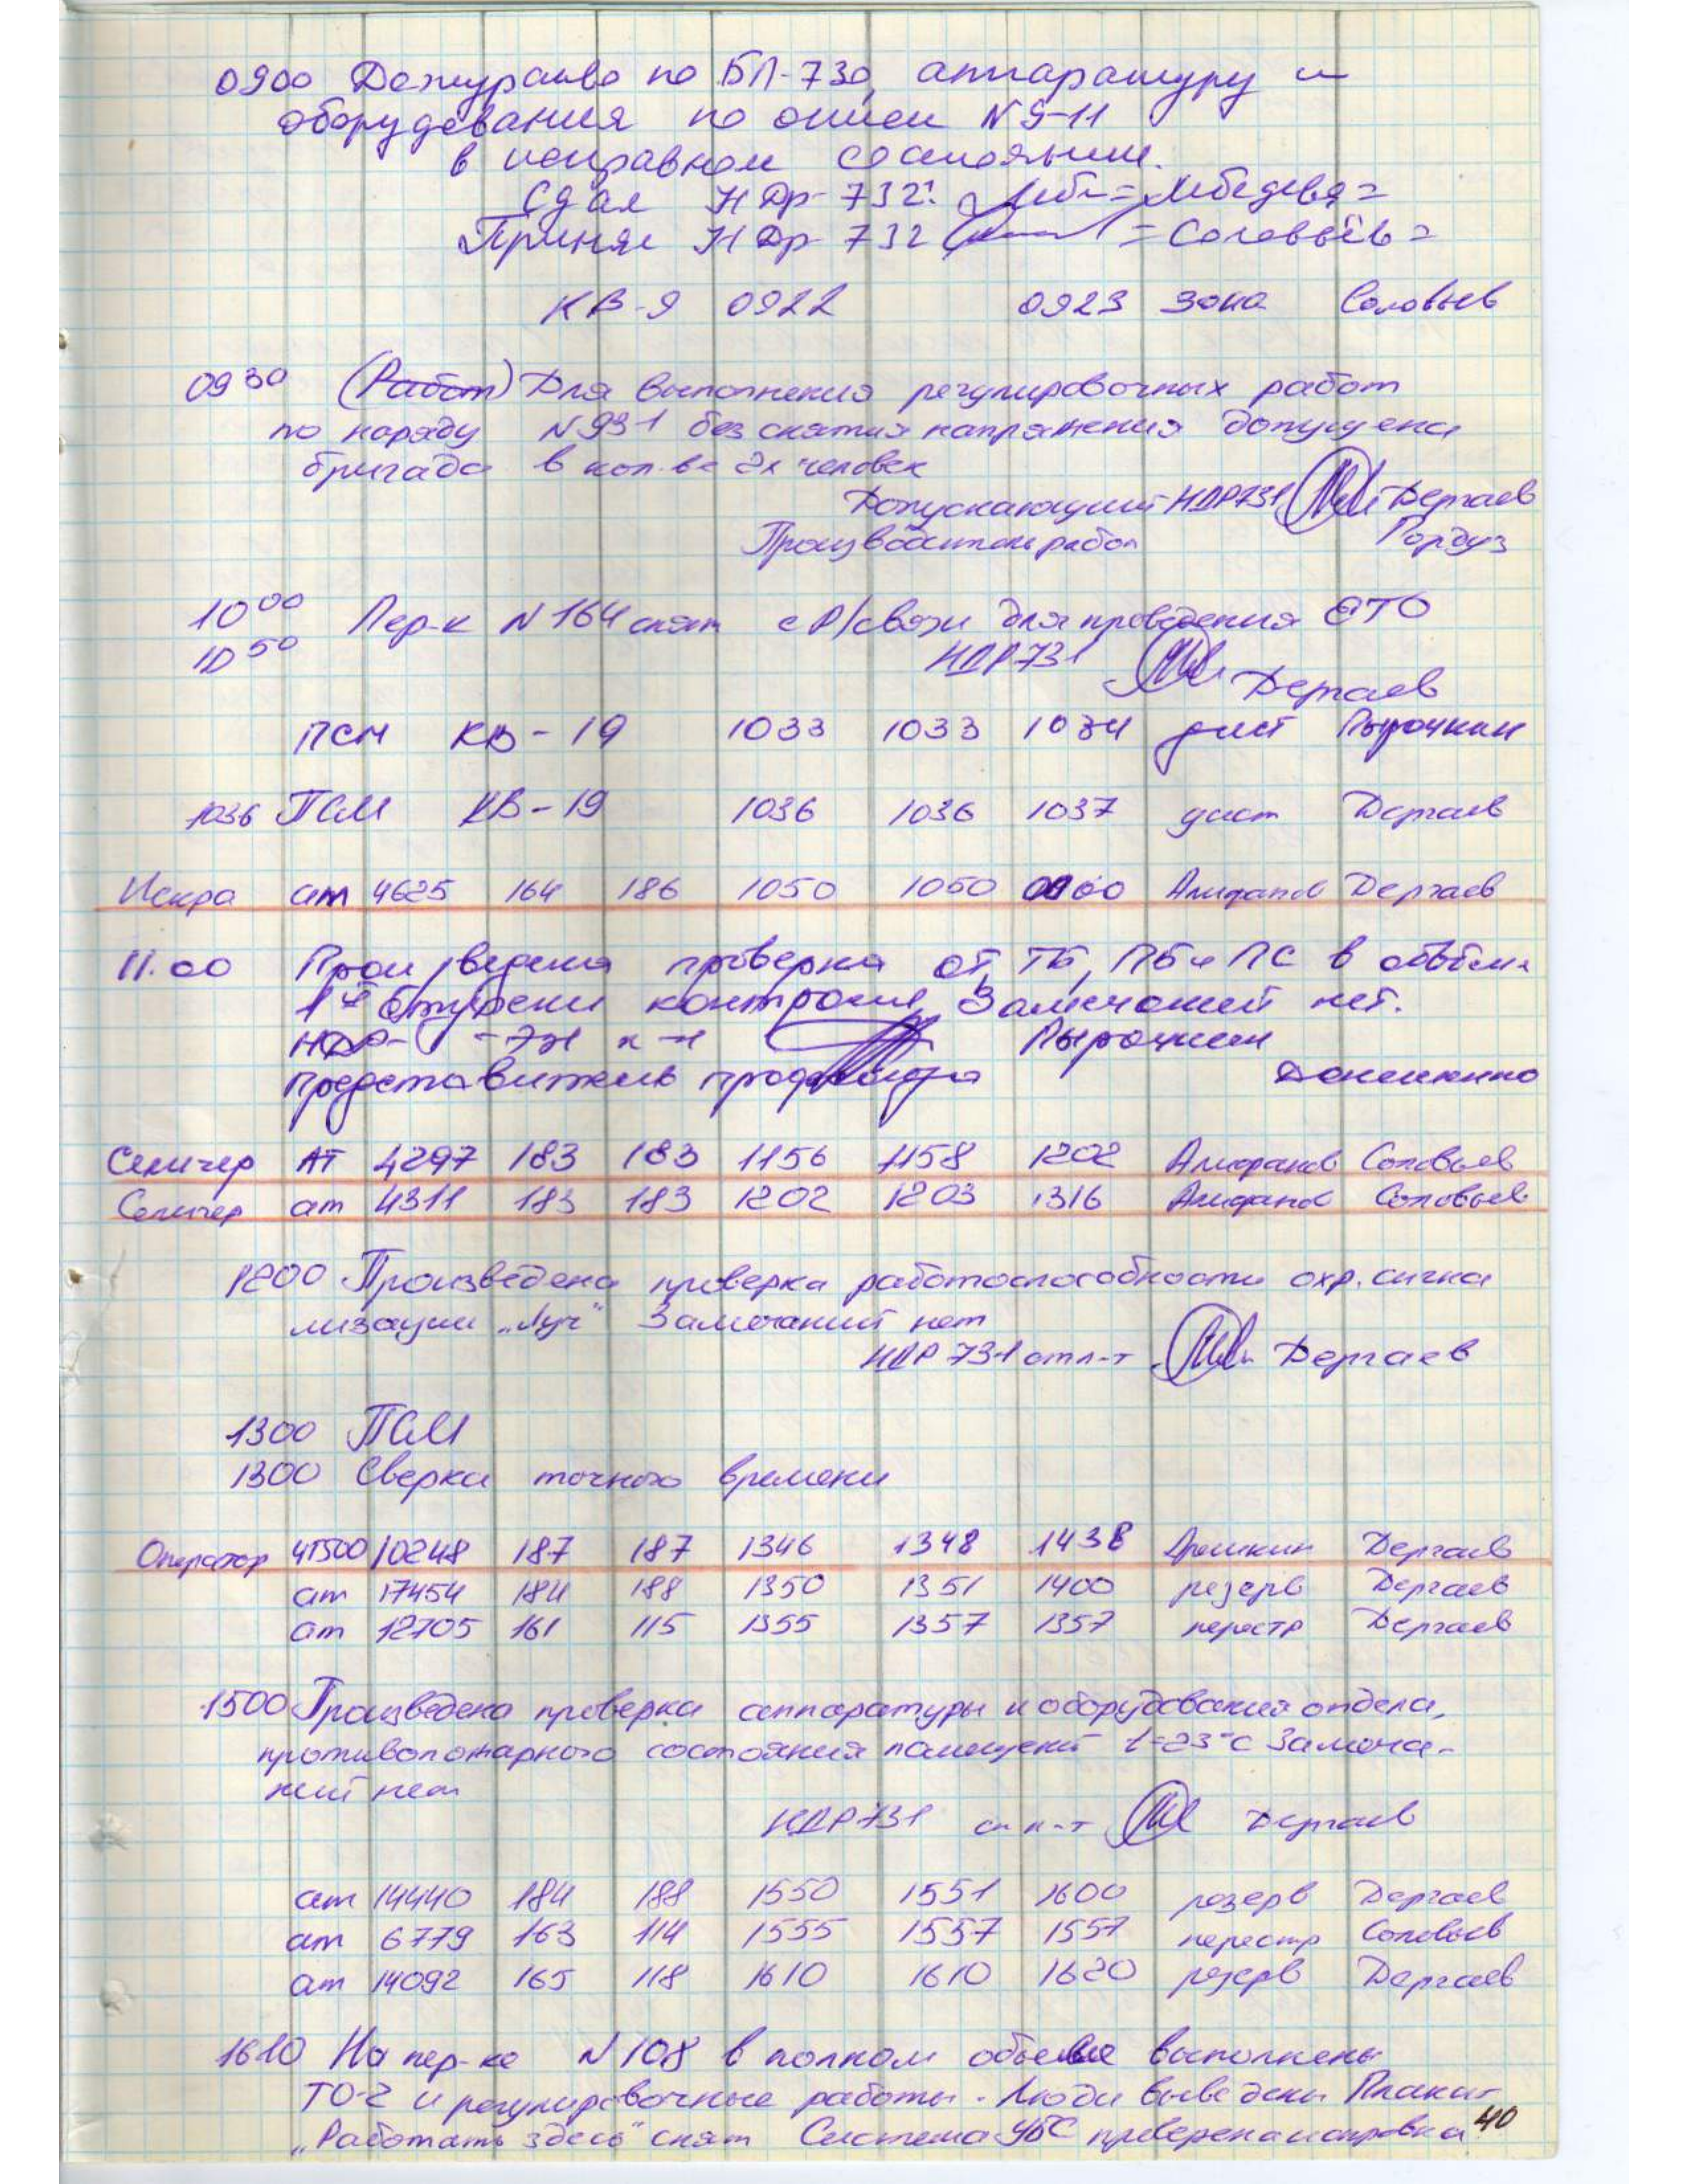 0900 Дежурство по БП-730, аппаратуру и
оборудования по описи N 9-11
в исправном состоянии.
Сдал НДр-732: =Лебедева=
Принял НДр 732 =Соловьёв=
КВ-9 0922 0923 зона Соловьев
09 30 (Работ) Для выполнения регулировочных работ
по наряду N 931 без снятия напряжения допущена
бригада в кол-ве 2х человек
Допускающий НДР731 Дергаев
Производитель работ Гордуз
10 00 Пер-к N 164 снят с Р/связи для проведения ЕТО
10 50 НДР731 Дергаев
ПСМ КВ-19 1033 1033 1034 дист Пырочкин
1036 ПСМ КВ-19 1036 1036 1037 дист Дергаев
Искра ат 4625 164 186 1050 1050 0000 Алифанов Дергаев
11.00 Произведена проверка ОТ, ТБ, ПБ и ПС в объёме
1й ступени контроля, Замечаний нет.
НДР- -731 к-н Пырочкин
представитель профбюро
Селигер АТ 4297 183 183 1156 1158 1202 Алифанов Соловьев
Селигер ат 4311 183 183 1202 1203 1316 Алифанов Соловьев
1200 Произведена проверка работоспособности охр. сигна
лизации „Луч“ Замечаний нет
НДР 731 ст л-т Дергаев
1300 ПСМ
1300 Сверка точного времени
Оператор ЧТ500 10248 187 187 1346 1348 1438 Дергаев
ат 17454 184 188 1350 1351 1400 резерв Дергаев
ат 12705 161 115 1355 1357 1357 перестр Дергаев
1500 Произведена проверка аппаратуры и оборудования отдела,
противопожарного состояния помещений t=23°С Замеча-
ний нет
НДР731 ст л-т Дергаев
ат 14440 184 188 1550 1551 1600 резерв Дергаев
ат 6779 163 114 1555 1557 1557 перестр Соловьев
ат 14092 165 118 1610 1610 1620 резерв Дергаев
1610 На пер-ке N 108 в полном объеме выполнены
ТО-2 и регулировочные работы. Люди выведены Плакат
„Работать здесь“ снят Система УБС проверена исправна
40